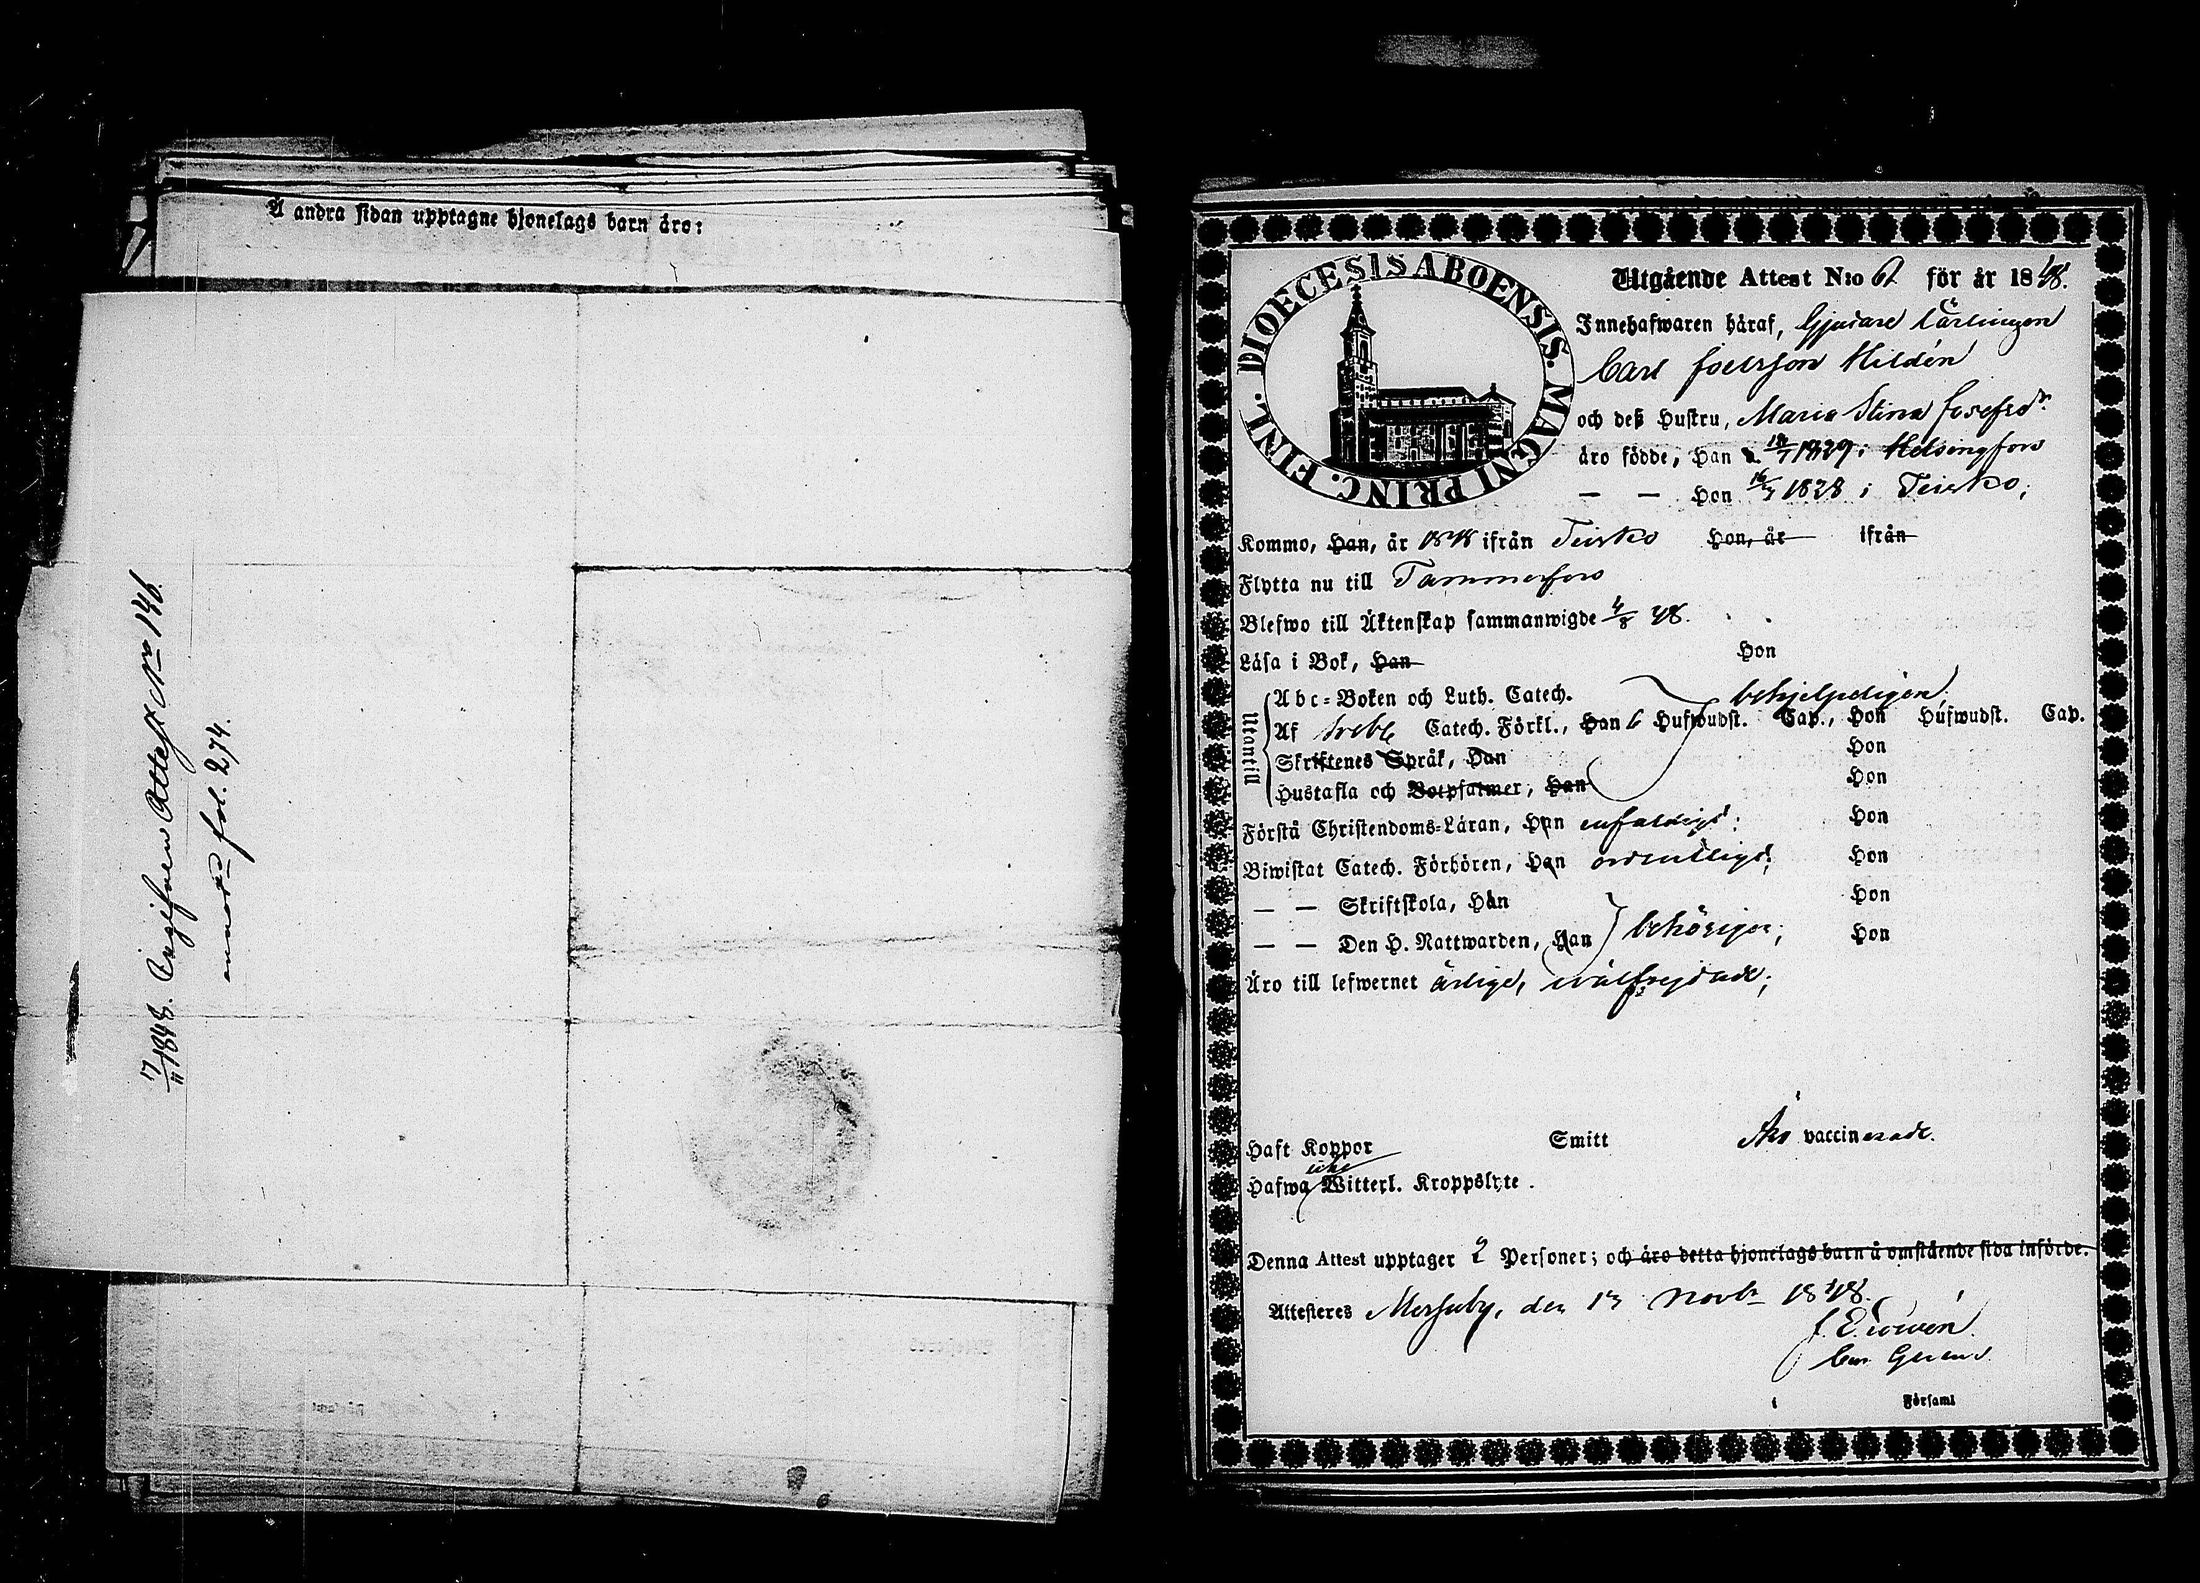 Å andra sidan upptagne hjonelags barn äro:
7/11 1848. Ingifven Attest No 146.
fol. 274.
DIOECESIS ABOENSIS. MAGNI PRINC. FINL.
Utgående Attest N:o 62 för år 1848.
Innehafwaren häraf, Gjutare Lärlingen
Carl Hildén
och deß Hustru, Maria Stina Josefsdr.
äro födde, Han d. 1829 i Helsingfors
— — Hon 1828 i Teisko,
Kommo, Han, år 1848 ifrån Teisko Hon, år ifrån
Flytta nu till Tammerfors
Blefwo till Äktenskap sammanwigde 4/8 48.
Läsa i Bok, Han Hon
Utantill
Abc-Boken och Luth. Catech. behjelpeligen
Af Sveb. Catech. Förkl., Han 6 Hufwudst. Cap., Hon Hufwudst. Cap.
Skriftenes Språk, Han Hon
Hustafla och Botpsalmer, Han Hon
Förstå Christendoms-Läran, Han enfaldigt; Hon
Biwistat Catech. Förhören, Han ordentligt; Hon
— — Skriftskola, Han Hon
— — Den H. Nattwarden, Han behörigen; Hon
Äro till lefwernet ärlige, wälfrejdade;
Haft Koppor Smitt Äro vaccinerade.
Hafwa icke Witterl. Kroppslyte.
Denna Attest upptager 2 Personer; och äro detta hjonelags barn å omstående sida införde.
Attesteras Messuby, den 13 Novbr 1848.
i Församl